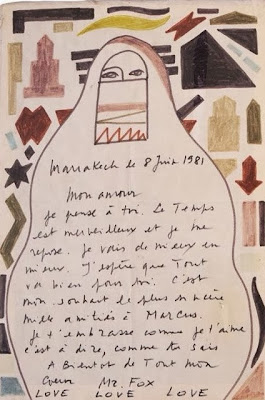 Marrakech le 8 Juin 1981
Mon amour
je pense à toi. Le Temps
est merveilleux et je me
repose. je vais de mieux en
mieux. J'espère que Tout
va bien pour toi. C'est
mon souhait le plus sincère
mille amitiés à Marcus.
Je t'embrasse comme je t'aime
c'est à dire, comme tu sais
A Bientot de Tout mon
Coeur Mr. Fox
LOVE LOVE LOVE